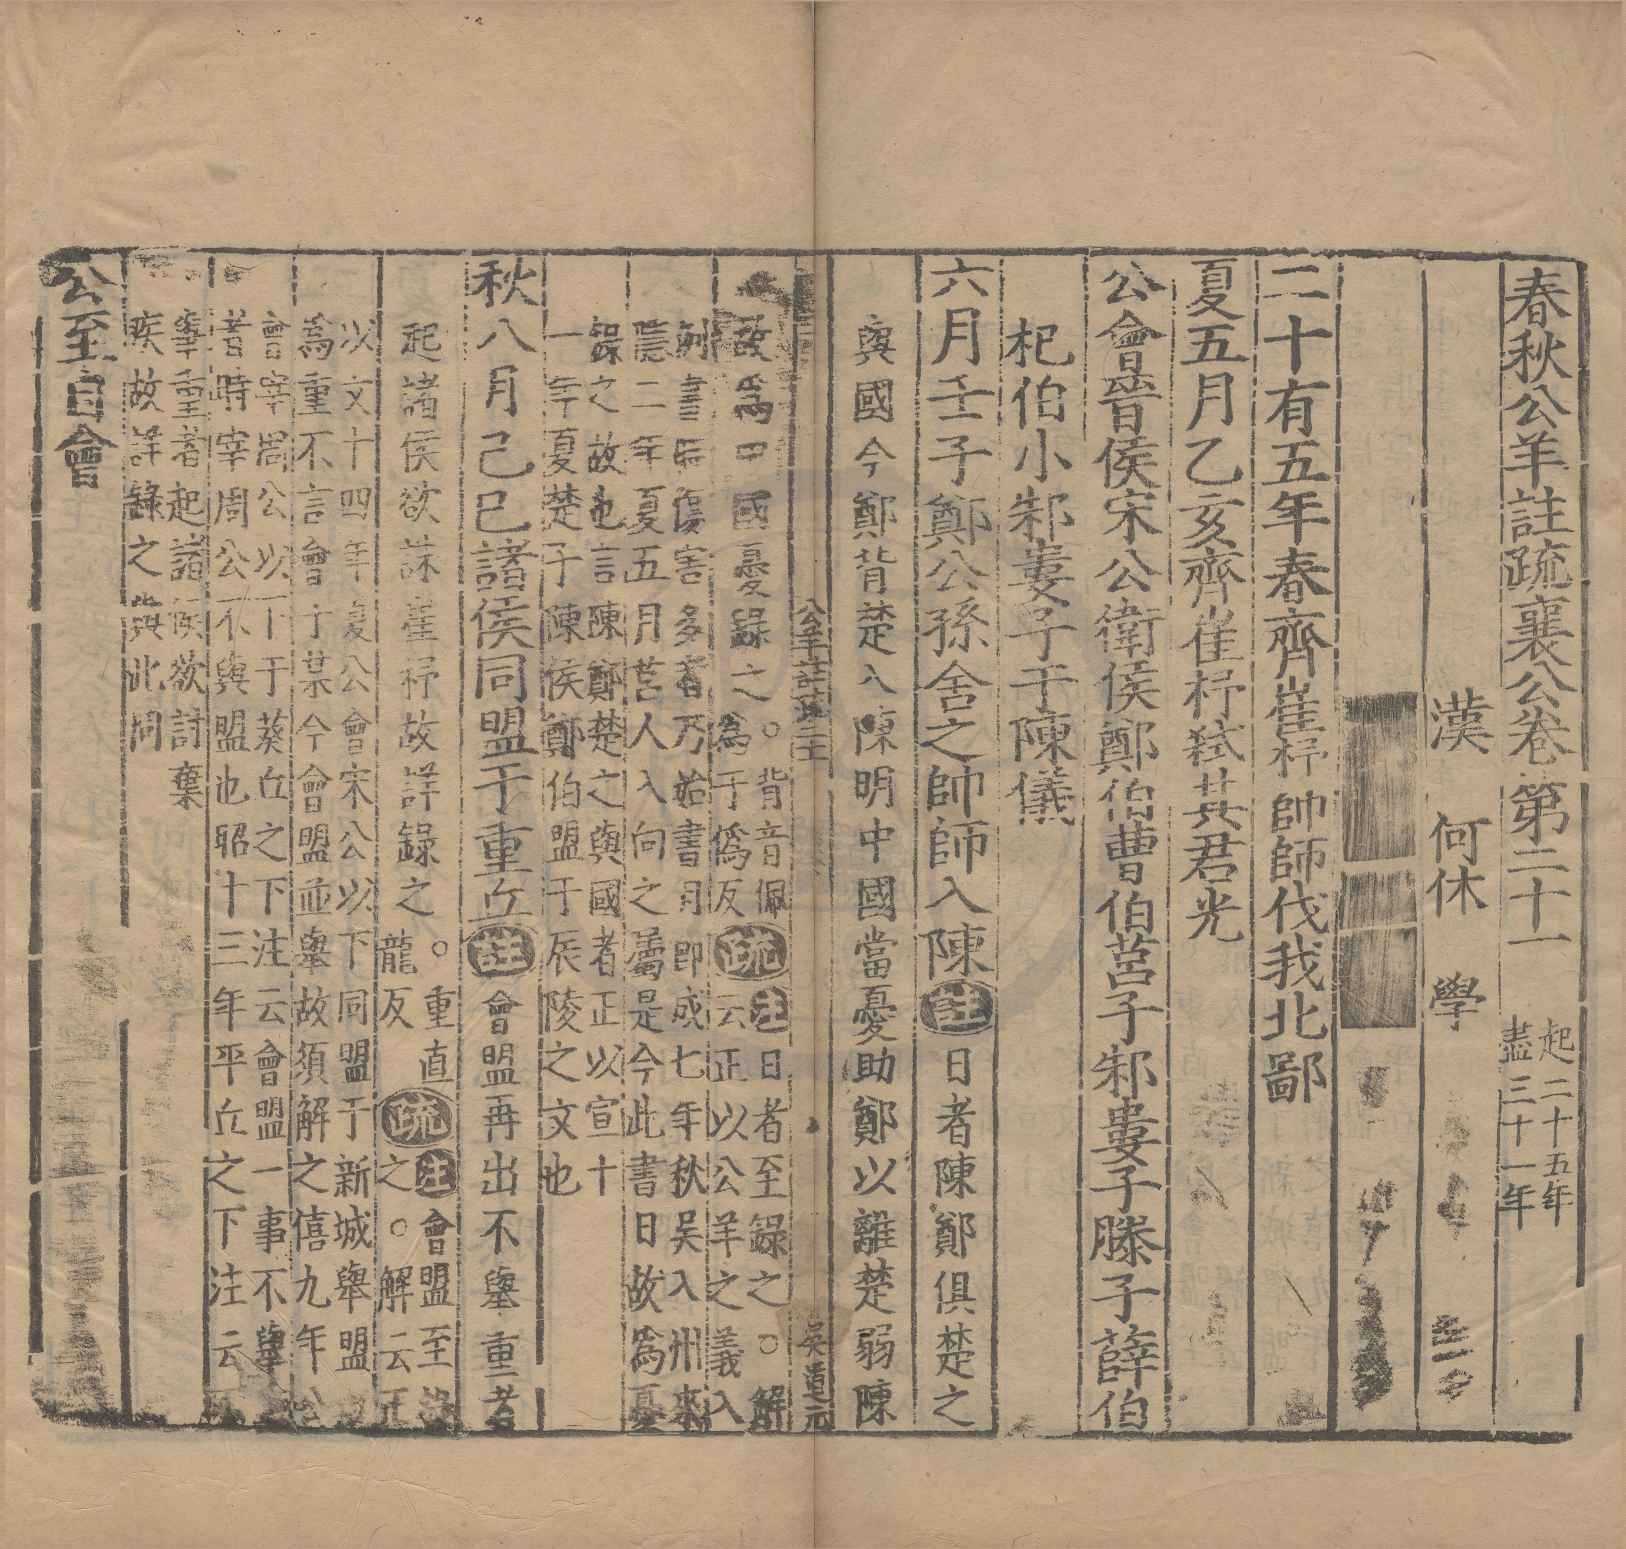 春秋公羊註疏襄公卷第二十一 起二十五年
盡三十一年
漢 何休 學
二十有五年春齊崔杼帥師伐我北鄙
夏五月乙亥齊崔杼弑其君光
公會晉侯宋公衛侯鄭伯曹伯莒子邾婁子滕子薛伯
杞伯小邾婁子于陳儀
六月壬子鄭公孫舍之帥師入陳註日者陳鄭俱楚之
與國今鄭背楚入陳明中國當憂助鄭以離楚弱陳
公羊註疏二十一
吳道元
故爲中國憂錄之。背音佩
爲于僞反疏注日者至錄之。解
云正以公羊之義入
例書時傷害多者乃始書月即成七年秋吳入州來
隱二年夏五月莒人入向之屬是今此書日故爲憂
錄之故也言陳鄭楚之與國者正以宣十
一年夏楚子陳侯鄭伯盟于辰陵之文也
秋八月己巳諸侯同盟于重丘註會盟再出不舉重者
起諸侯欲誅崔杼故詳錄之。重直
龍反疏注會盟至
之。解云正
以文十四年夏公會宋公以下同盟于新城舉盟
爲重不言會于某今會盟並舉故須解之僖九年公
會宰周公以下于葵丘之下注云會盟一事不舉
者時宰周公不與盟也昭十三年平丘之下注云
舉重者起諸侯欲討棄
疾故詳錄之與此同
公至自會